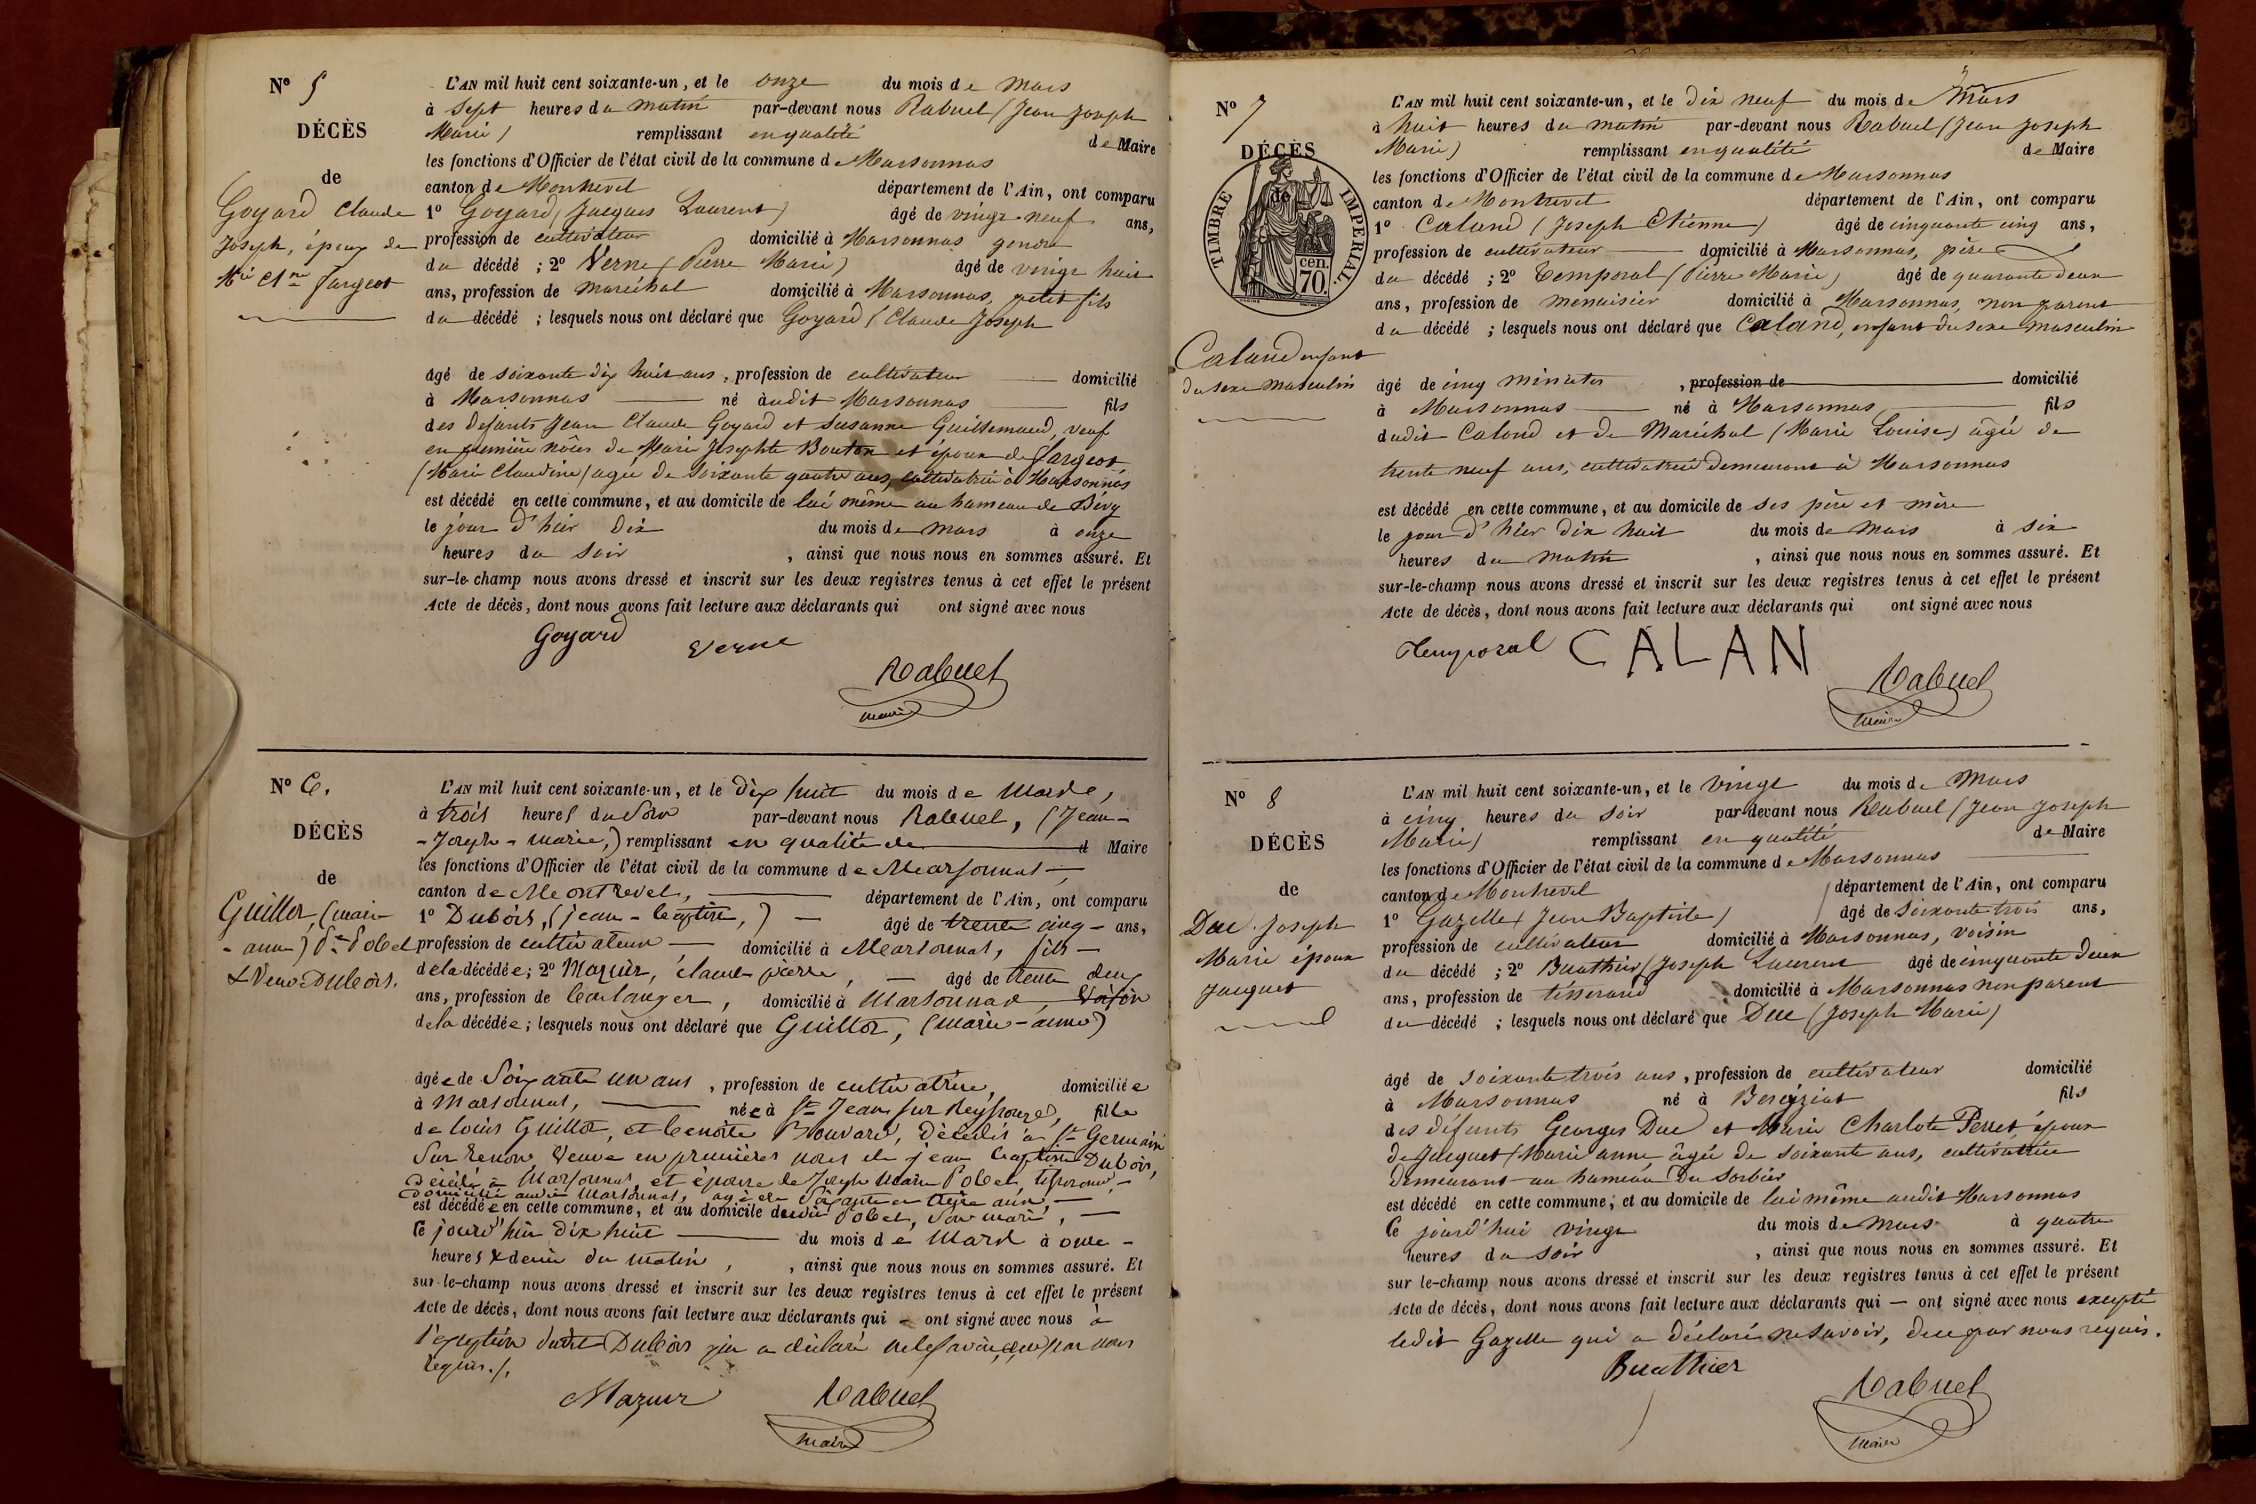 Nº 5
DÉCÈS
de
Goyard Claude
Joseph, époux de
Mie Cl.ne Jargeot
L'AN mil huit cent soixante-un, et le onze du mois de Mars
à sept heures du matin par-devant nous Rabuel (Jean Joseph
Marie) remplissant en qualité de Maire
les fonctions d'Officier de l'état civil de la commune de Marsonnas
canton de Montrevel département de l'Ain, ont comparu
1º Goyard (Jacques Laurent) âgé de vingt-neuf ans,
profession de cultivateur domicilié à Marsonnas gendre
du décédé ; 2º Verne (Pierre Marie) âgé de vingt huit
ans, profession de maréchal domicilié à Marsonnas, petit fils
du décédé ; lesquels nous ont déclaré que Goyard (Claude Joseph
âgé de soixante dix huit ans, profession de cultivateur domicilié
à Marsonnas né àudit Marsonnas fils
des defunts Jean Claude Goyard et Susanne Guillemaud, veuf
en première nôces de Marie Josephte Bouton et époux de Jargeot
(Marie Claudine) agée de soixante quatre ans, cultivatrice à Marsonnas
est décédé en cette commune, et au domicile de lui même au hameau de Bévy
le jour d'hier dix du mois de Mars à onze
heures du soir , ainsi que nous nous en sommes assuré. Et
sur-le-champ nous avons dressé et inscrit sur les deux registres tenus à cet effet le présent
Acte de décès, dont nous avons fait lecture aux déclarants qui ont signé avec nous
Goyard Verne
Rabuel
maire
Nº 6.
DÉCÈS
de
Guillot, (marie
-anne) fe Pobel
& Veuve Dubois.
L'AN mil huit cent soixante-un, et le dix huit du mois de Mars,
à trois heures du Soir par-devant nous Rabuel, (Jean-
-Joseph-marie,) remplissant en qualité de d Maire
les fonctions d'Officier de l'état civil de la commune de Marsonnas
canton de Montrevel, département de l'Ain, ont comparu
1º Dubois, (jean-baptiste,) âgé de trente cinq ans,
profession de cultivateur domicilié à Marsonnas, fils
de la décédée; 2º Mazuir, claude pierre, âgé de trente deux
ans, profession de boulanger, domicilié à Marsonnas, Voisin
de la décédée; lesquels nous ont déclaré que Guillot, (marie-anne)
âgée de Soixante un ans, profession de cultivatrice, domiciliée
à Marsonnas, née à St Jean sur Reyssouze, fille
de louis Guillot, et benoite Bouvard, décédés à St Germain
Sur Renon, Veuve en premières noces de jean baptiste Dubois,
décédé à Marsonnas, et épouse de Joseph Marie Pobel, tisserand,
domicilié audit Marsonnas, agé de Soixante et treize ans,
est décédée en cette commune, et au domicile dudit Pobel, Son mari,
le jourd'hui dix huit du mois de Mars à onze
heures & demie du matin, , ainsi que nous nous en sommes assuré. Et
sur-le-champ nous avons dressé et inscrit sur les deux registres tenus à cet effet le présent
Acte de décès, dont nous avons fait lecture aux déclarants qui ont signé avec nous à
l'exception dudit Dubois qui a déclaré ne le savoir, de ce par nous
requis./.
Mazuir Rabuel
maire
Nº 7
DÉCÈS
de
TIMBRE IMPÉRIAL.
cen.
70.
Caland enfant
du sexe masculin
L'AN mil huit cent soixante-un, et le dix neuf du mois de Mars
à huit heures du matin par-devant nous Rabuel (Jean Joseph
Marie) remplissant en qualité de Maire
les fonctions d'Officier de l'état civil de la commune de Marsonnas
canton de Montrevel département de l'Ain, ont comparu
1º Caland (Joseph Etienne) âgé de cinquante cinq ans,
profession de cultivateur domicilié à Marsonnas, père
du décédé ; 2º Temporal (Pierre Marie) âgé de quarante deux
ans, profession de menuisier domicilié à Marsonnas, non parent
du décédé ; lesquels nous ont déclaré que Caland, enfant du sexe masculin
âgé de cinq minutes , profession de domicilié
à Marsonnas né à Marsonnas fils
dudit Caland et de Maréchal (Marie Louise) âgée de
trente neuf ans, cultivatrice demeurant à Marsonnas
est décédé en cette commune, et au domicile de ses père et mère
le jour d'hier dix huit du mois de Mars à six
heures du matin , ainsi que nous nous en sommes assuré. Et
sur-le-champ nous avons dressé et inscrit sur les deux registres tenus à cet effet le présent
Acte de décès, dont nous avons fait lecture aux déclarants qui ont signé avec nous
Temporal CALAN
Rabuel
maire
Nº 8
DÉCÈS
de
Duc Joseph
Marie époux
Jacquet
L'AN mil huit cent soixante-un, et le vingt du mois de Mars
à cinq heures du soir par-devant nous Rabuel (Jean Joseph
Marie) remplissant en qualité de Maire
les fonctions d'Officier de l'état civil de la commune de Marsonnas
canton de Montrevel département de l'Ain, ont comparu
1º Gazelle (Jean Baptiste) âgé de soixante trois ans,
profession de cultivateur domicilié à Marsonnas, voisin
du décédé ; 2º Buathier (Joseph Laurent âgé de cinquante deux
ans, profession de tisserand domicilié à Marsonnas non parent
du décédé ; lesquels nous ont déclaré que Duc (Joseph Marie)
âgé de soixante trois ans, profession de cultivateur domicilié
à Marsonnas né à Béréziat fils
des défunts Georges Duc et Marie Charlote Perret époux
de Jacquet (Marie anne âgée de soixante ans, cultivatrice
demeurant au hameau du Sorbier
est décédé en cette commune, et au domicile de lui même audit Marsonnas
le jourd'hui vingt du mois de Mars à quatre
heures du soir , ainsi que nous nous en sommes assuré. Et
sur le-champ nous avons dressé et inscrit sur les deux registres tenus à cet effet le présent
Acte de décès, dont nous avons fait lecture aux déclarants qui — ont signé avec nous excepté
ledit Gazelle qui a déclaré ne savoir, de ce par nous requis.
Buathier
Rabuel
maire